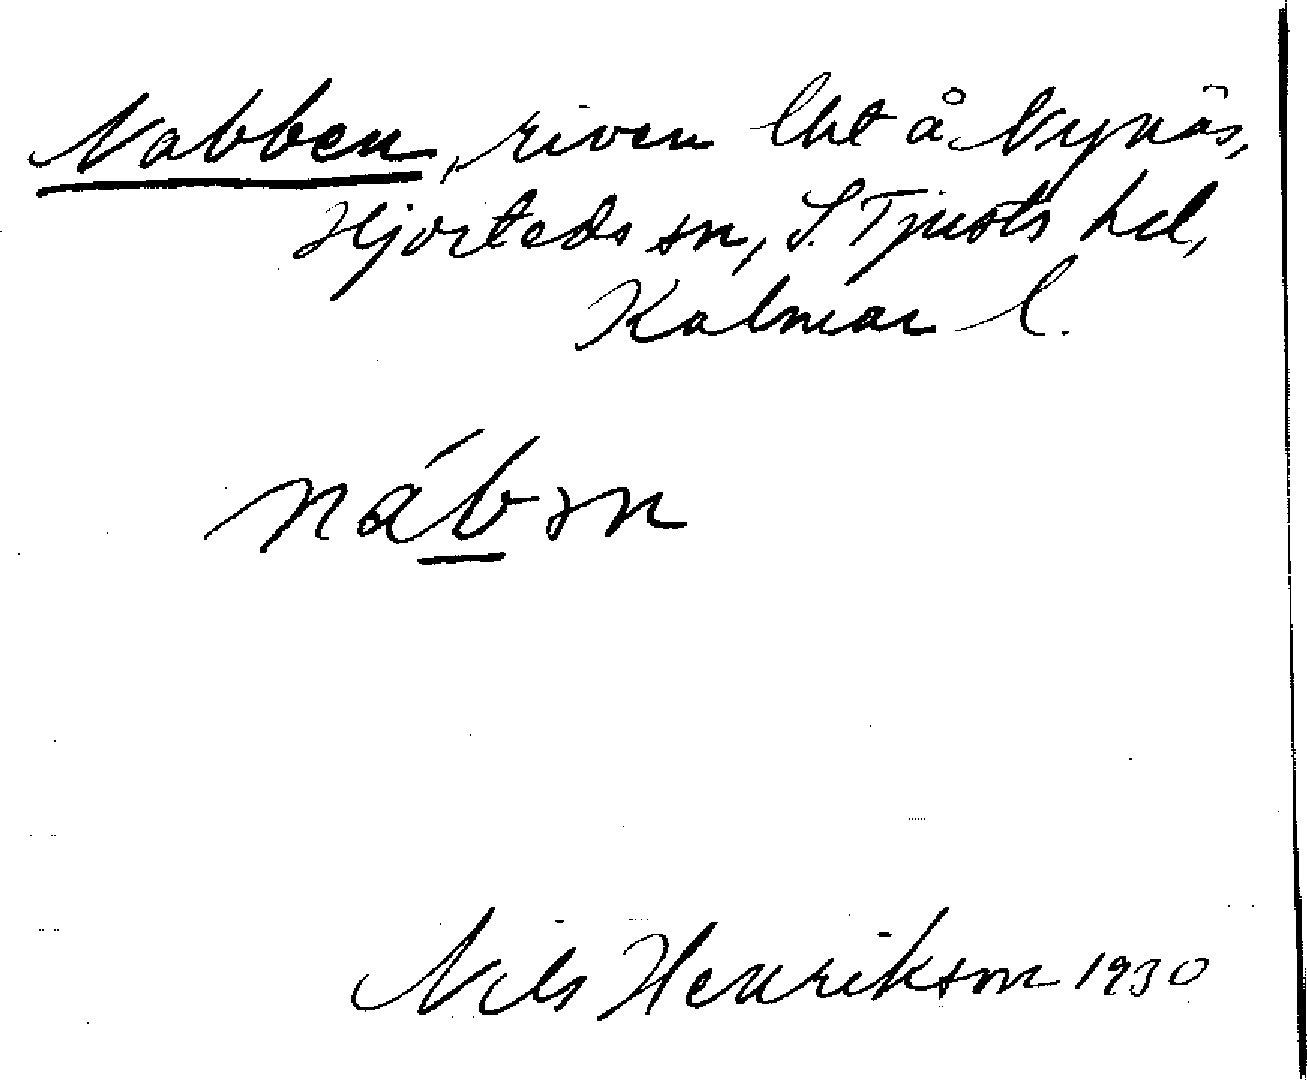 Nabben, riven lht å Nynäs,
Hjorteds sn, S. Tjusts hd,
Kalmar l.
nábən
Nils Henrikson 1930